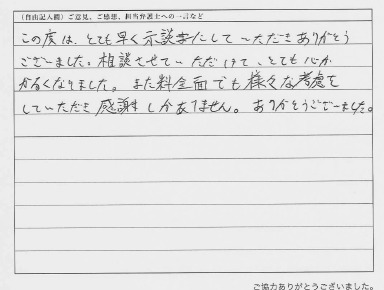 (自由記入欄)ご意見、ご感想、担当弁護士への一言など
この度は、とても早く示談にして いただき ありがとう
ございました。相談させていただけて、とても心が
かるくなりました。また料金面でも様々な考慮を
していただき 感謝しかありません。ありがとうございました。
ご協力ありがとうございました。